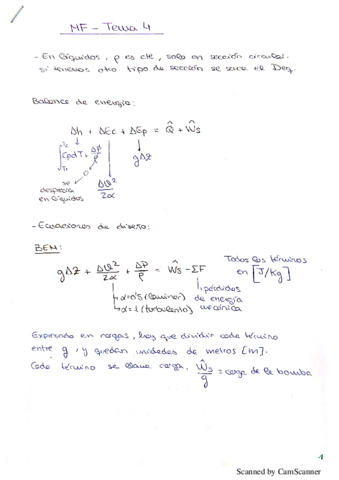 MF - Tema 4
- En líquidos, ρ es cte, solo en sección circular.
si tenemos otro tipo de sección se saca el Deq.
Balance de energía:
Δh + ΔEc + ΔEp = Q̂ + Ŵs
∫ Cpd T + ΔP/ρ
T2
T1
0
gΔZ
se desprecia en líquidos
Δv²/2α
- Ecuaciones de diseño:
BEM:
gΔZ + Δv²/2α + ΔP/ρ = Ŵs - ΣF
Todos los términos en [J/kg]
pérdidas de energía mecánica
α=0'5 (laminar)
α=1 (turbulento)
Expresado en cargas, hay que dividir cada término
entre g, y quedan unidades de metros [m].
Cada término se llama carga, Ŵs/g = carga de la bomba
1
Scanned by CamScanner